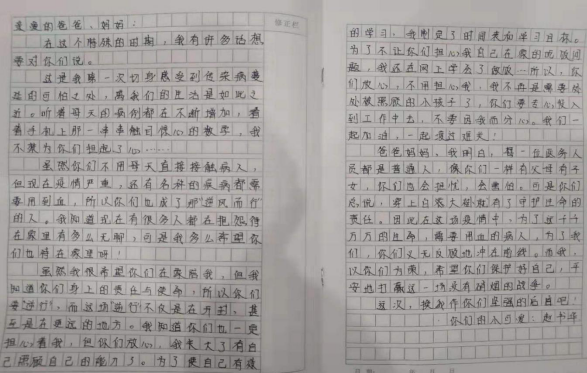 亲爱的爸爸、妈妈：
在这个特殊的时期，我有许多话想
要对你们说。
这是我第一次切身感受到传染病蔓
延的可怕之处，离我们的生活是如此之
近。听着每天的病例都在不断增加，看
着手机上那一串串触目惊心的数字，我
不禁为你们担心了……
虽然你们不用每天直接接触病人，
但现在疫情严重，还有各科的疾病都需
要用到血，所以你们也成了那“逆风而行”
的人。我知道现在有很多人都在抱怨待
在家里有多么无聊，可是我多么希望你
们也待在家里呀！
虽然我很希望你们在家陪我，但我
知道你们身上的责任与使命，所以你们
要“逆行”，而这场“逆行”不仅是在开封，甚
至是在更远的地方。我知道你们也一定
担心着我，但你们放心，我长大了有自
己照顾自己的能力了。为了使自己有规
的学习，我制定了时间表加学习目标。
为了不让你们担心我自己在家的吃饭问
题，我还在网上学会了做饭…所以，你
们放心，不用担心我，我不再是需要处
处被照顾的小孩子了，你们要全心投入
到工作中去，不要因我而分心。我们一
起加油，一起渡过难关！
爸爸妈妈，我明白，每一位医务人
员都是普通人，像你们一样有父母有子
女，你们也会担忧，会害怕。可是你们
总说，穿上白衣大褂就有了守护生命的
责任。因此在这场疫情中，为了这千千
万万的生命，需要用血的病人，为了我
们，你们义无反顾地冲在前线。而我，
以你们为傲，希望你们保护好自己，平
安地打赢这一场没有硝烟的战争。
这次，换我作你们坚强的后盾吧！
你们的小可爱：赵书萍